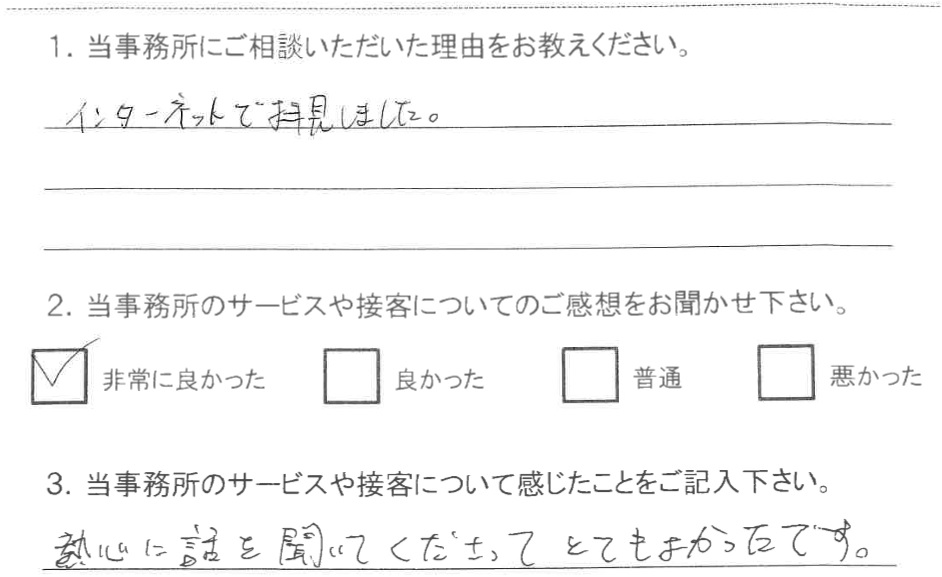 1. 当事務所にご相談いただいた理由をお教えください。
インターネットで拝見しました。
2. 当事務所のサービスや接客についてのご感想をお聞かせ下さい。
非常に良かった 良かった 普通 悪かった
3. 当事務所のサービスや接客について感じたことをご記入下さい。
熱心に話を聞いてくださってとてもよかったです。